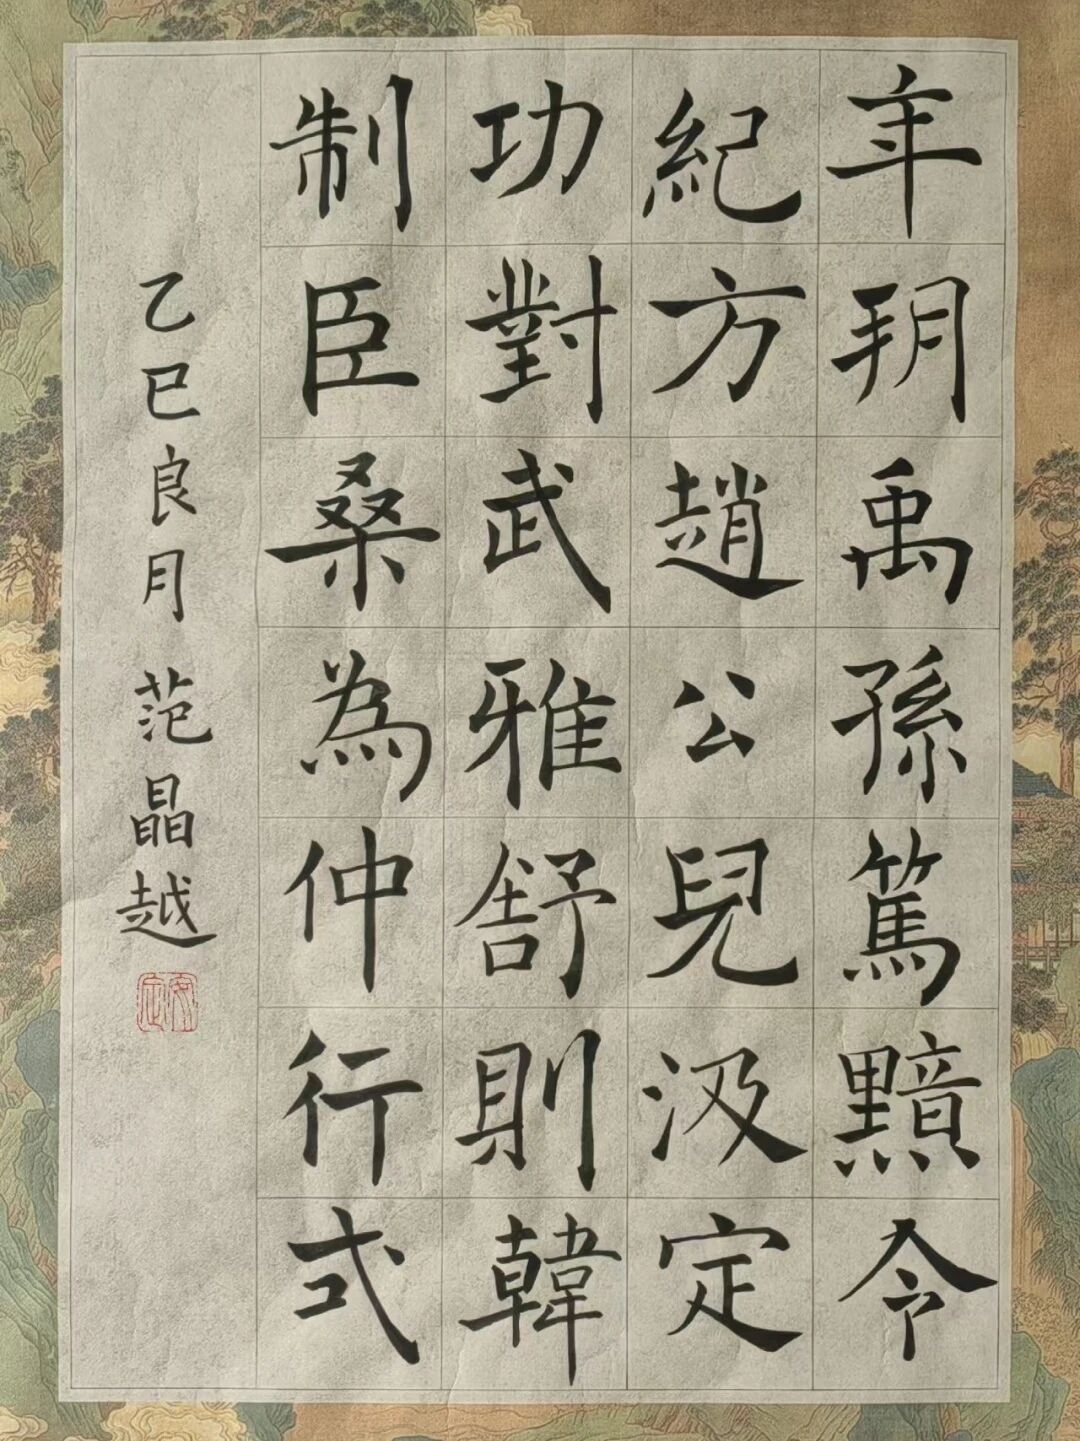 年玥禹孫篤黯令
紀方趙公兒汲定
功對武雅舒則韓
制臣桑為仲行式
乙巳良月 范晶越
安定